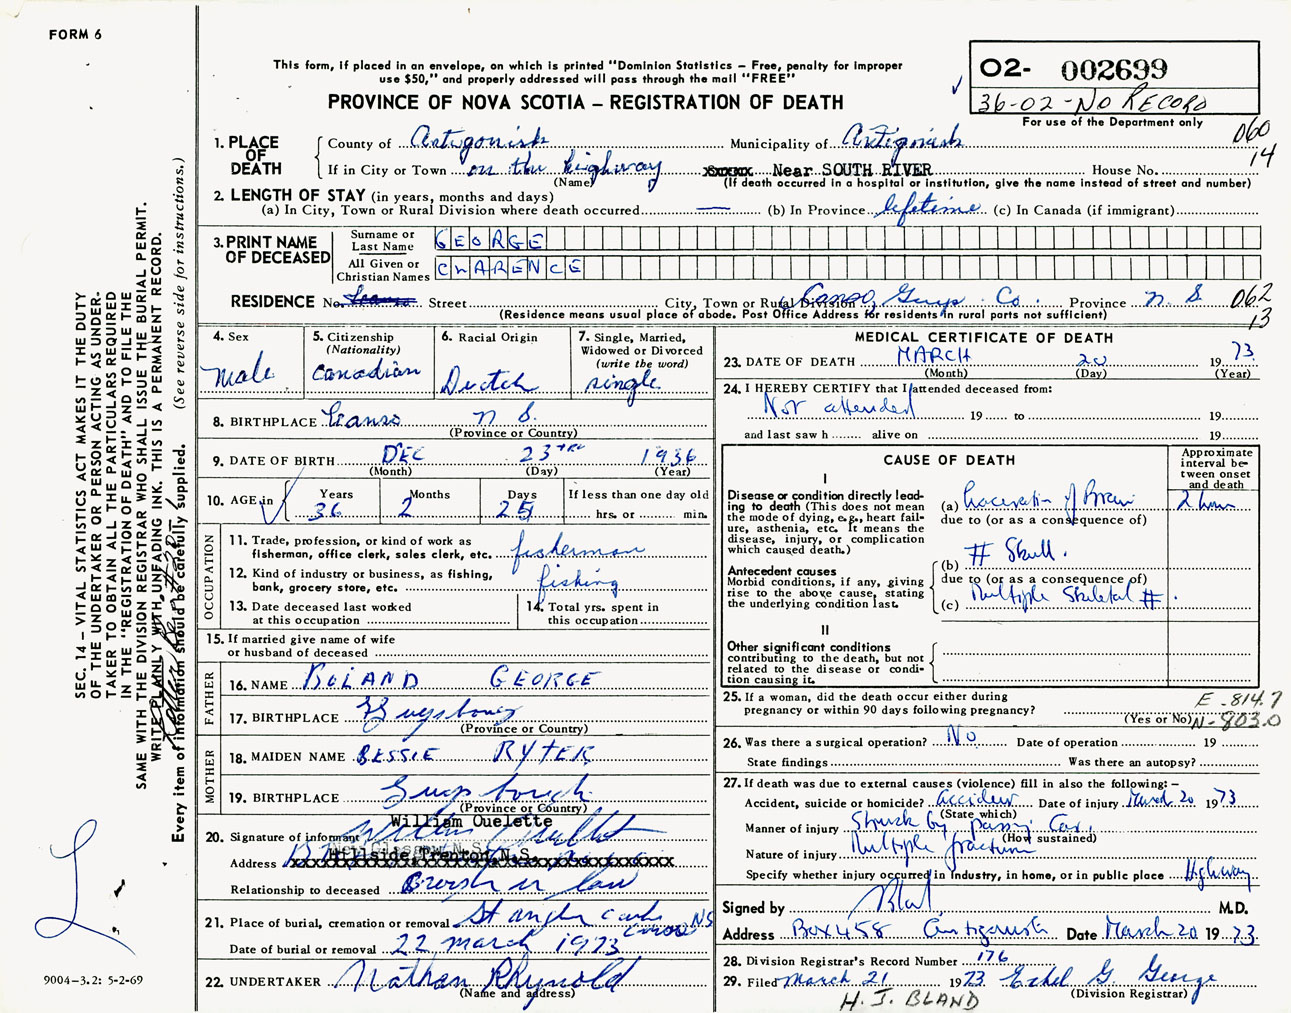 FORM 6
This form, if placed in an envelope, on which is printed "Dominion Statistics – Free, penalty for improper
use $50," and properly addressed will pass through the mail "FREE"
PROVINCE OF NOVA SCOTIA – REGISTRATION OF DEATH
02- 002699
36-02-No RECORD
For use of the Department only
060
14
1. PLACE OF DEATH
County of Antigonish Municipality of Antigonish
If in City or Town on the highway xxxxxx Near SOUTH RIVER House No.
(Name) (If death occurred in a hospital or institution, give the name instead of street and number)
2. LENGTH OF STAY (in years, months and days)
(a) In City, Town or Rural Division where death occurred — (b) In Province lifetime (c) In Canada (if immigrant)
3. PRINT NAME OF DECEASED
Surname or Last Name GEORGE
All Given or Christian Names CLARENCE
RESIDENCE No. Canso Street City, Town or Rural Division Canso, Guys. Co. Province N S
062
13
(Residence means usual place of abode. Post Office Address for residents in rural parts not sufficient)
4. Sex Male
5. Citizenship (Nationality) Canadian
6. Racial Origin Dutch
7. Single, Married, Widowed or Divorced (write the word) single
8. BIRTHPLACE Canso N S.
(Province or Country)
9. DATE OF BIRTH DEC 23 1936
(Month) (Day) (Year)
10. AGE in Years 36 Months 2 Days 25 If less than one day old hrs. or min.
OCCUPATION
11. Trade, profession, or kind of work as fisherman, office clerk, sales clerk, etc. fisherman
12. Kind of industry or business, as fishing, bank, grocery store, etc. fishing
13. Date deceased last worked at this occupation
14. Total yrs. spent in this occupation
15. If married give name of wife or husband of deceased
FATHER
16. NAME BOLAND GEORGE
17. BIRTHPLACE Guysboro
(Province or Country)
MOTHER
18. MAIDEN NAME BESSIE RYTER
19. BIRTHPLACE Guysbough
(Province or Country)
William Ouelette
20. Signature of informant William Ouellet
New Glasgow N.S.
Address Hillside Trenton N.S. xxxxxxxx
Relationship to deceased Brother in law
21. Place of burial, cremation or removal St Canso NS
Date of burial or removal 22 march 1973
22. UNDERTAKER Nathan Rhynold
(Name and address)
MEDICAL CERTIFICATE OF DEATH
23. DATE OF DEATH MARCH 20 1973
(Month) (Day) (Year)
24. I HEREBY CERTIFY that I attended deceased from:
Not attended 19 to 19
and last saw h alive on 19
CAUSE OF DEATH
Approximate interval between onset and death
I
Disease or condition directly leading to death (This does not mean the mode of dying, e.g., heart failure, asthenia, etc. It means the disease, injury, or complication which caused death.)
(a) Laceration of Brain 2 hours
due to (or as a consequence of)
(b) # Skull.
due to (or as a consequence of)
Antecedent causes
Morbid conditions, if any, giving rise to the above cause, stating the underlying condition last.
(c) Multiple Skeletal #.
II
Other significant conditions contributing to the death, but not related to the disease or condition causing it.
25. If a woman, did the death occur either during pregnancy or within 90 days following pregnancy?
(Yes or No)
E -814.7
N-803.0
26. Was there a surgical operation? No Date of operation 19
State findings Was there an autopsy?
27. If death was due to external causes (violence) fill in also the following: –
Accident, suicide or homicide? accident Date of injury March 20 1973
(State which)
Manner of injury Struck by passing Car.
(How sustained)
Nature of injury Multiple fractures
Specify whether injury occurred in Industry, in home, or in public place Highway.
Signed by Bland M.D.
Address Box 458 Antigonish Date March 20 1973
28. Division Registrar's Record Number 176
29. Filed March 21 1973 Ethel G. George
(Division Registrar)
H. J. BLAND
SEC. 14 – VITAL STATISTICS ACT MAKES IT THE DUTY
OF THE UNDERTAKER OR PERSON ACTING AS UNDER-
TAKER TO OBTAIN ALL THE PARTICULARS REQUIRED
IN THE "REGISTRATION OF DEATH" AND TO FILE THE
SAME WITH THE DIVISION REGISTRAR WHO SHALL ISSUE THE BURIAL PERMIT.
WRITE PLAINLY WITH UNFADING INK. THIS IS A PERMANENT RECORD.
Every item of information should be carefully supplied. (See reverse side for instructions.)
9004-3.2: 5-2-69